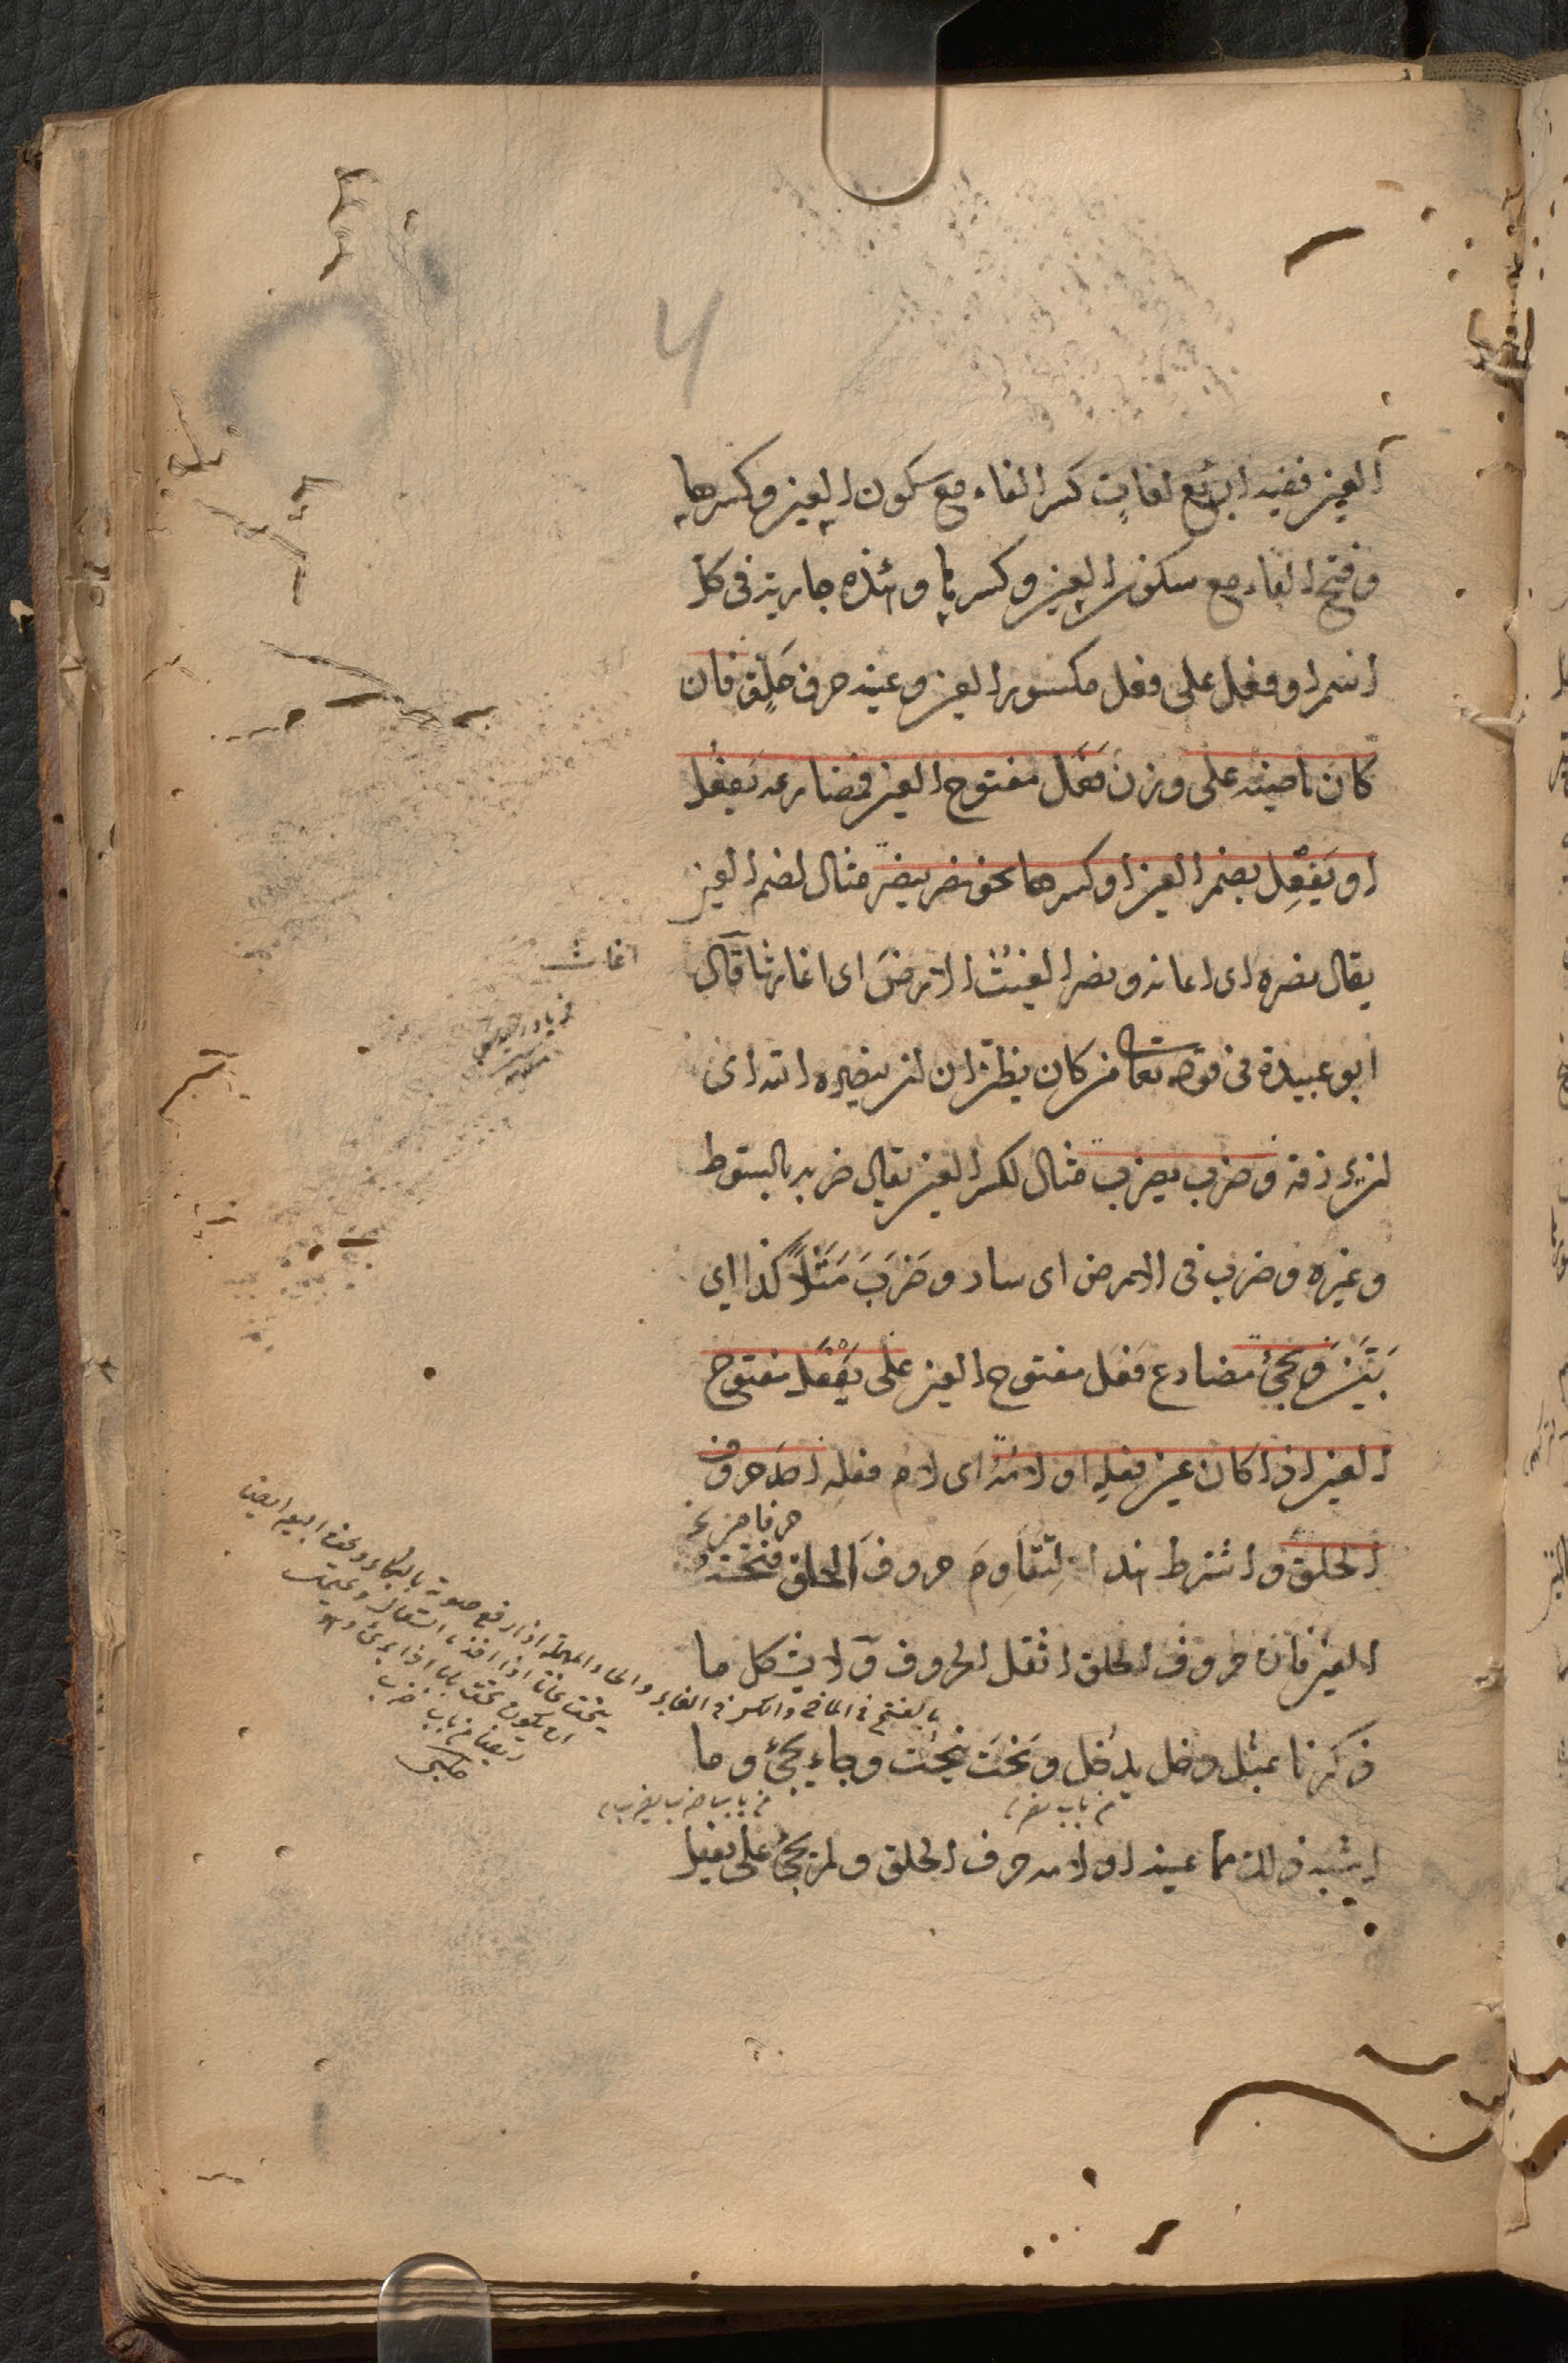 العين ففيه اربع لغات كسر الفاء مع سكون العين وكسرها
وفتح الفاء مع سكون العين وكسرها وهذه جارية فى كل
اسم او فعل على فعل مكسور العين وعينه حرف حَلقٍ فان
كان ماضيه على وزن فَعَل مفتوح العين فمضارعه يَفعُل
او يَفْعِل بضم العين او كسرها نحو نصر ينصر مثال لضم العين
يقال نصره اى اعانه ونصر الغيثُ الارضَ اى اغاثها قال
ابو عبيدة فى قوله تعا من كان يظن ان لن ينصره الله اى
لن يرزقه وضرب يضرب مثال لكسر العين يقال ضربه بالسوط
وغيره وضرب فى الارض اى سار وضَرَبَ مَثَلًا كذا اى
بَيَّنَ وَيجئ مضارع فعَل مفتوح العين على يَفْعَل مفتوح
العين اذا كان عين فعله او لامُه اى لام فعله احد حروف
حرفا من
الحلق واشترط هذا لتقاوم حروفَ الحلق فتحة
العين فان حروف الحلق اثقل الحروف ولا يشكل ما
ذكرنا بمثل دخل يدخُل ونَحَتَ ينحِت وجاء يجئ وما
من باب نصر
من باب ضرب يضرب
اشبه ذلك مما عينه او لامه حرف الحلق ولم يجئ على يفعل
اغاث
بالفتح فى الماضى والكسر فى الغابر
ايضا من باب ضرب